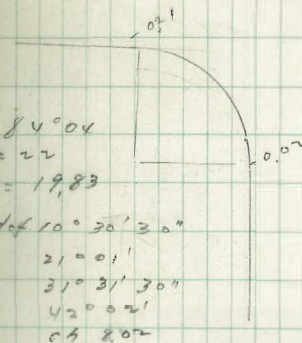 0.2'
84°04
= 22
= 19,83
0.02
def 10° 30' 30"
21° 01'
31° 31' 30"
42° 02'
ch 8.02